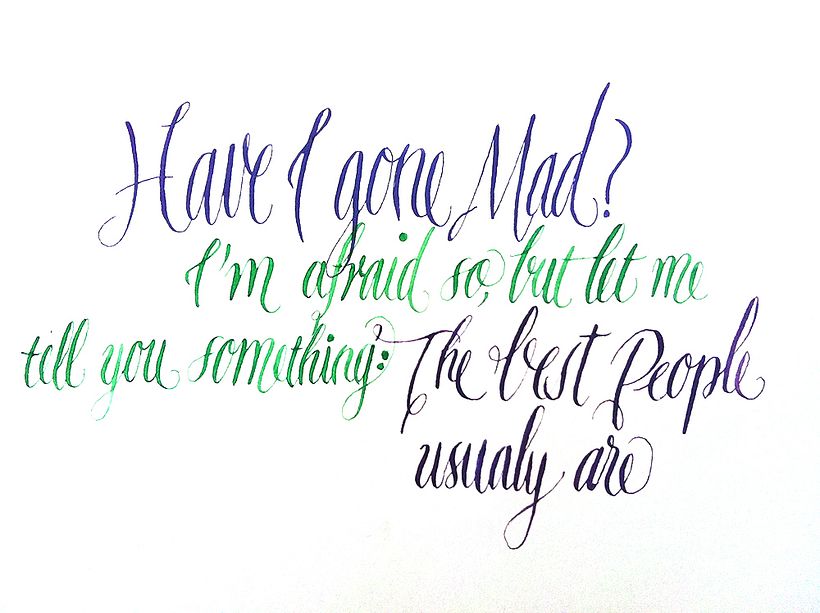 Have I gone Mad?
I'm afraid so, but let me
tell you something: The best People
usualy are